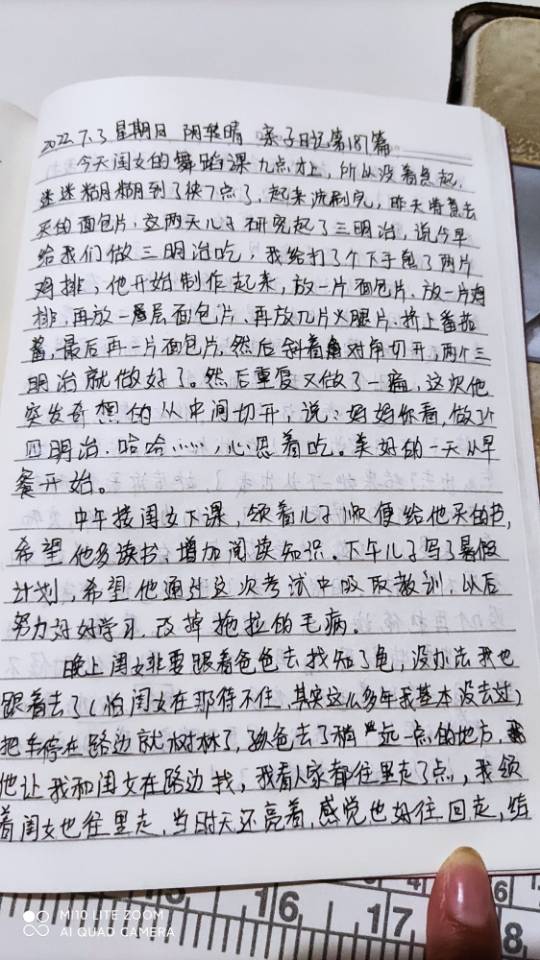 2022.7.3 星期日 阴转晴 亲子日记第187篇
今天闺女的舞蹈课九点才上，所以没着急起，
迷迷糊糊到了快7点了，起来洗刷完，昨天特意去
买的面包片，这两天儿子研究起了三明治，说今早
给我们做三明治吃，我给打了个下手煎了两片
鸡排，他开始制作起来，放一片面包片，放一片鸡
排，再放一层面包片，再放几片火腿片，挤上番茄
酱，最后再一片面包片，然后斜着对角切开，两个三
明治就做好了。然后重复又做了一遍，这次他
突发奇想的从中间切开，说：妈妈你看，做了个
四明治，哈哈……，心思着吃。美好的一天从早
餐开始。
中午接闺女下课，领着儿子顺便给他买的书，
希望他多读书，增加阅读知识。下午儿子写了暑假
计划，希望他通过这次考试中吸取教训，以后
努力好好学习，改掉拖拉的毛病。
晚上闺女非要跟着爸爸去找知了龟，没办法我也
跟着去了（怕闺女在那待不住，其实这么多年我基本没去过）
把车停在路边就树林了，爸去了稍远一点的地方，
他让我和闺女在路边找，我看人家都往里走了点，我领
着闺女也往里走，当时天还亮着，感觉也好往回走，结
MI 10 LITE ZOOM
AI QUAD CAMERA
15 16 17 8